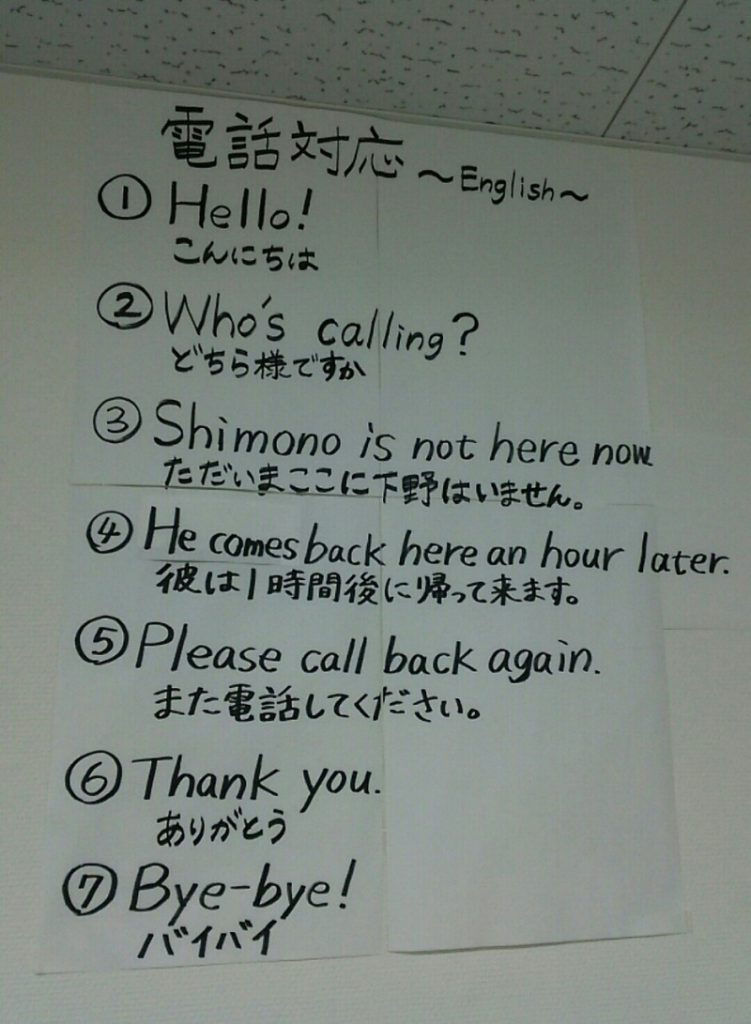 電話対応 ～English～
① Hello!
こんにちは
② Who's calling?
どちら様ですか
③ Shimono is not here now
ただいまここに下野はいません。
④ He comes back here an hour later.
彼は1時間後に帰って来ます。
⑤ Please call back again.
また電話してください。
⑥ Thank you.
ありがとう
⑦ Bye-bye!
バイバイ